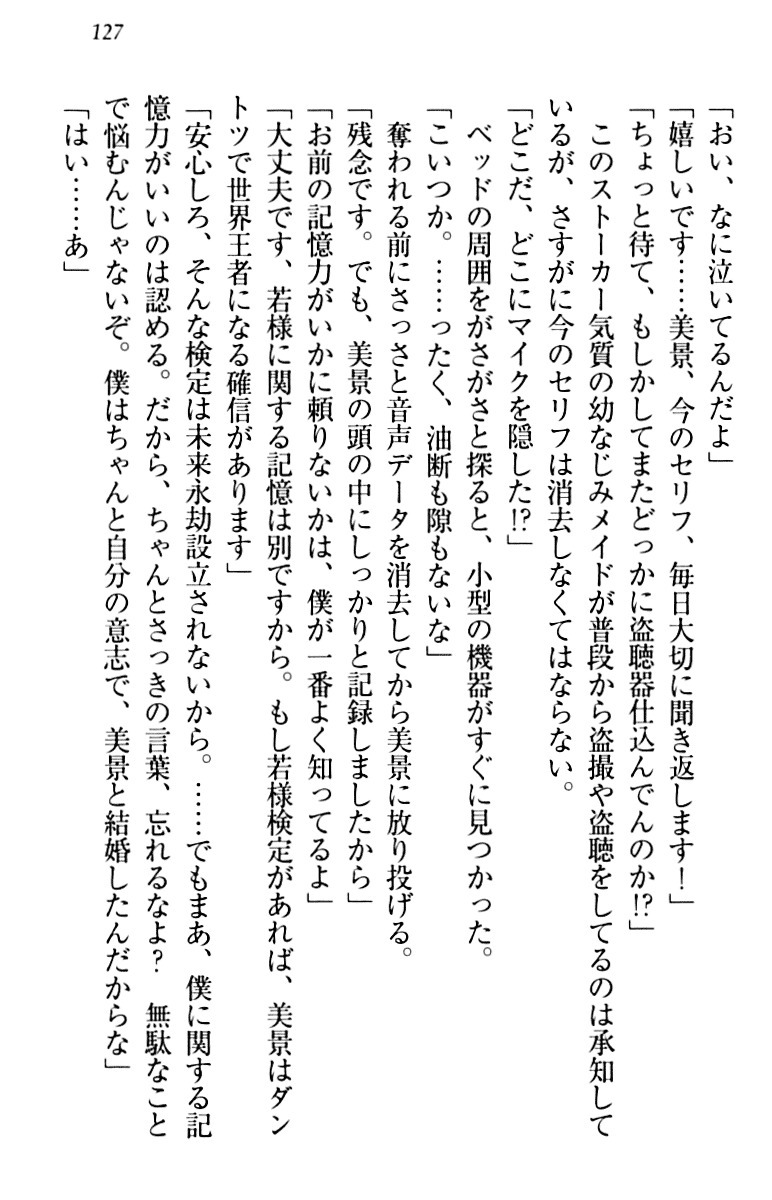 127
「おい、なに泣いてるんだよ」
「嬉しいです……美景、今のセリフ、毎日大切に聞き返します！」
「ちょっと待て、もしかしてまたどっかに盗聴器仕込んでんのか!?」
　このストーカー気質の幼なじみメイドが普段から盗撮や盗聴をしてるのは承知して
いるが、さすがに今のセリフは消去しなくてはならない。
「どこだ、どこにマイクを隠した!?」
　ベッドの周囲をがさがさと探ると、小型の機器がすぐに見つかった。
「こいつか。……ったく、油断も隙もないな」
　奪われる前にさっさと音声データを消去してから美景に放り投げる。
「残念です。でも、美景の頭の中にしっかりと記録しましたから」
「お前の記憶力がいかに頼りないかは、僕が一番よく知ってるよ」
「大丈夫です、若様に関する記憶は別ですから。もし若様検定があれば、美景はダン
トツで世界王者になる確信があります」
「安心しろ、そんな検定は未来永劫設立されないから。……でもまあ、僕に関する記
憶力がいいのは認める。だから、ちゃんとさっきの言葉、忘れるなよ？　無駄なこと
で悩むんじゃないぞ。僕はちゃんと自分の意志で、美景と結婚したんだからな」
「はい……あ」